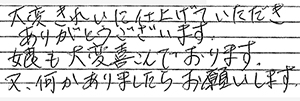 大変きれいに仕上げていただき
ありがとうございます。
娘も大変喜こんでおります。
又、何かありましたらお願いします。